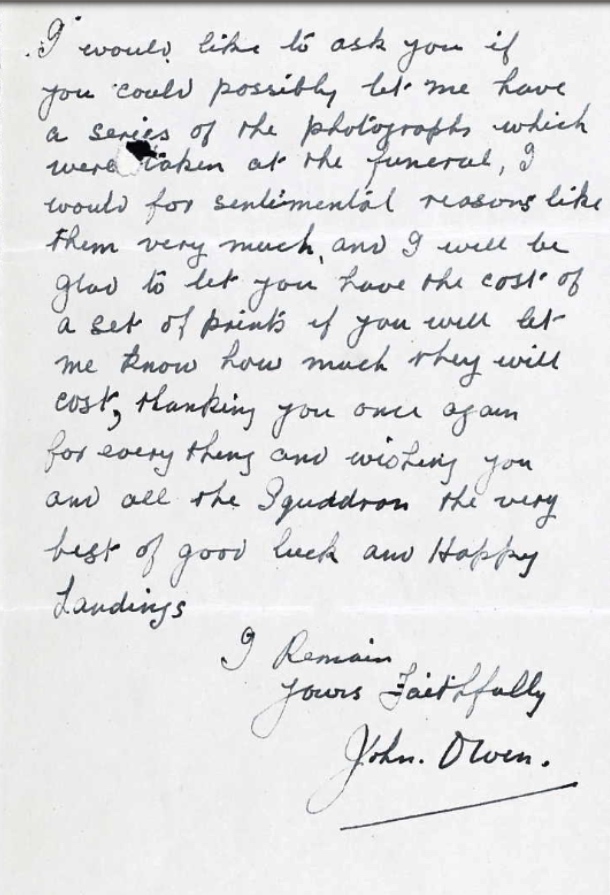 I would like to ask you if
you could possibly let me have
a series of the photographs which
were taken at the funeral, I
would for sentimental reasons like
them very much, and I will be
glad to let you have the cost of
a set of prints if you will let
me know how much they will
cost, thanking you once again
for every thing and wishing you
and all the Squddron the very
best of good luck and Happy
Landings
I Remain
Yours Faithfully
John. Owen.